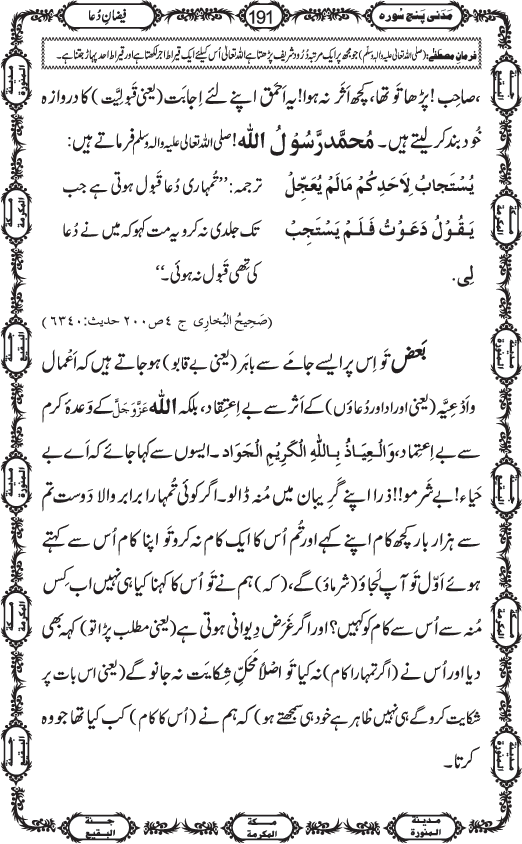 مَدَنی پنج سُورہ
191
فیضانِ دُعا
فرمانِ مصطفٰے: (صلی اللہ تعالیٰ علیہ والہ وسلم) جو مجھ پر ایک مرتبہ دُرود شریف پڑھتا ہے اللہ تعالیٰ اُس کیلئے ایک قیراط اجر لکھتا ہے اور قیراط احد پہاڑ جتنا ہے۔
،صاحِب! پڑھا تو تھا، کچھ اَثَر نہ ہوا! یہ اَحْمَق اپنے لئے اِجابَت (یعنی قَبولیَّت) کا دروازہ
خُود بند کر لیتے ہیں۔ مُحمَّد رَّسُوْلُ اللہ! صلی اللہ تعالیٰ علیہ والہٖ وسلم فرماتے ہیں:
یُسْتَجابُ لِاَحَدِکُمْ مَالَمْ یُعَجِّلْ
یَقُوْلُ دَعَوْتُ فَلَمْ یَسْتَجِبْ
لِی.
ترجمہ: ’’تُمہاری دُعا قَبول ہوتی ہے جب
تک جلدی نہ کرو یہ مت کہو کہ میں نے دُعا
کی تھی قَبول نہ ہوئی۔‘‘
(صَحِیحُ البُخاری ج ٤ ص ٢٠٠ حدیث: ٦٣٤٠)
بَعض تو اِس پر ایسے جامے سے باہَر (یعنی بے قابو) ہو جاتے ہیں کہ اَعْمال
واَدْعِیَّہ (یعنی اوراد اور دُعاؤں) کے اَثَر سے بے اِعتِقاد، بلکہ اللہ عَزَّوَجَلَّ کے وَعدۂ کرم
سے بے اِعتِماد، وَالْعِیَاذُ بِاللہِ الْکَرِیْمِ الْجَوَاد۔ ایسوں سے کہا جائے کہ اَے بے
حَیاء! بے شَرمو!! ذرا اپنے گَرِیبان میں مُنہ ڈالو۔ اگر کوئی تُمہارا برابر والا دَوست تم
سے ہزار بار کچھ کام اپنے کہے اور تُم اُس کا ایک کام نہ کرو تو اپنا کام اُس سے کہتے
ہوئے اَوّل تو آپ لَجاؤ (شرماؤ) گے، (کہ) ہم نے تو اُس کا کہنا کیا ہی نہیں اب کِس
مُنہ سے اُس سے کام کو کہیں؟ اور اگر غَرَض دِیوانی ہوتی ہے (یعنی مطلب پڑا تو) کہہ بھی
دیا اور اُس نے (اگر تمہارا کام) نہ کیا تو اَصْلاً مَحَلِّ شِکایَت نہ جانو گے (یعنی اس بات پر
شکایت کرو گے ہی نہیں ظاہر ہے خود ہی سمجھتے ہو) کہ ہم نے (اُس کا کام) کب کیا تھا جو وہ
کرتا۔
مدینۃ المنورۃ
مکۃ المکرمۃ
جنۃ البقیع